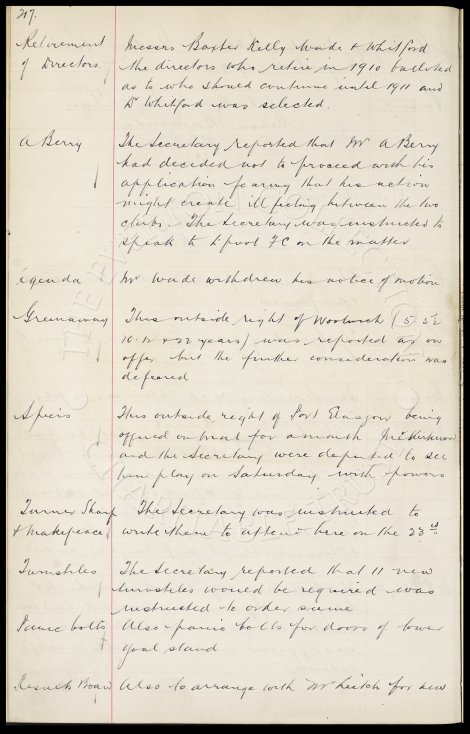 217.
Retirement of Directors.
Messrs Baxter Kelly Wade & Whitford
the directors who retire in 1910 balloted
as to who should continue until 1911 and
Dr Whitford was selected.
A Berry
The Secretary reported that Mr A Berry
had decided not to proceed with his
application fearing that his action
might create ill feeling between the two
clubs. The Secretary was instructed to
speak to Lpool FC on the matter
Agenda
Mr Wade withdrew his notice of motion
Greenaway
This outside right of Woolwich (5.5½
10.12 & 22 years) was reported as on
offer but the further consideration was
defered
Speirs
This outside right of Port Glasgow being
offered on trial for a month
and the Secretary were deputed to see
him play on Saturday with powers
Turner Sharp
& Makepeace
The Secretary was instructed to
write them to attend here on the 23rd
Turnstiles
The Secretary reported that 11 new
turnstiles would be required was
instructed to order same
Panic bolts
Also panic bolts for doors of lower
goal stand
Results Board
Also to arrange with Mr Leitch for new